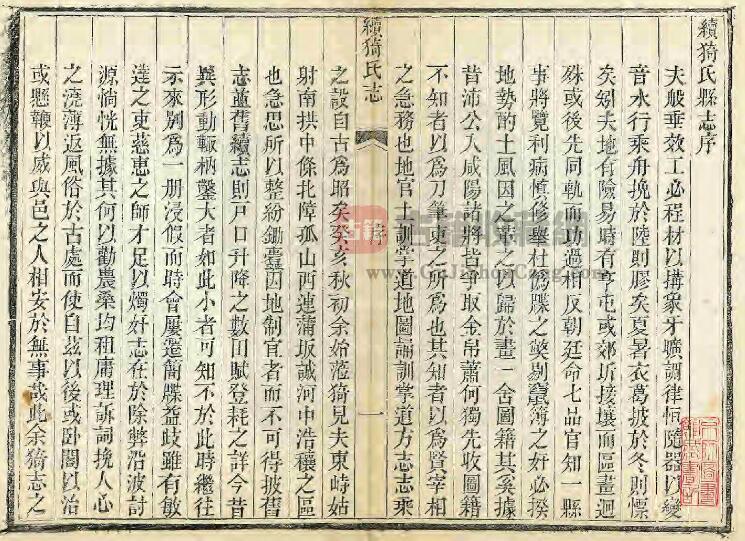 續猗氏縣志序
夫般垂效工必程材以搆象牙曠調律恒隨器以變
音水行乘舟挽於陸則膠矣夏暑衣葛披於冬則慄
矣矧夫地有險易時有亨屯或郊圻接壤而區畫迥
殊或後先同軌而功過相反朝廷命七品官知一縣
事將覽利病慎修舉杜僞牒之獘剔竄簿之奸必揆
地勢酌土風因之革之以歸於畫一舍圖籍其奚據
昔沛公入咸陽諸將皆爭取金帛蕭何獨先收圖籍
不知者以爲刀筆吏之所爲也其知者以爲賢宰相
之急務也地官土訓掌道地圖誦訓掌道方志志乘
續猗氏志
序
一
之設自古爲昭矣癸亥秋初余始蒞猗見夫東峙姑
射南拱中條北障孤山西連蒲坂誠河中浩穰之區
也急思所以整紛鋤蠹因地制宜者而不可得披舊
志並舊續志則戸口升降之數田賦登耗之詳今昔
異形動輙枘鑿大者如此小者可知不於此時繼往
示來别爲一册浸假而時會屢遷簡牒益歧雖有敏
達之吏慈惠之師才足以燭奸志在於除獘沿波討
源惝恍無據其何以勸農桑均租庸理訴詞挽人心
之澆薄返風俗於古處而使自兹以後或卧閣以治
或懸鞭以威與邑之人相安於無事哉此余猗志之